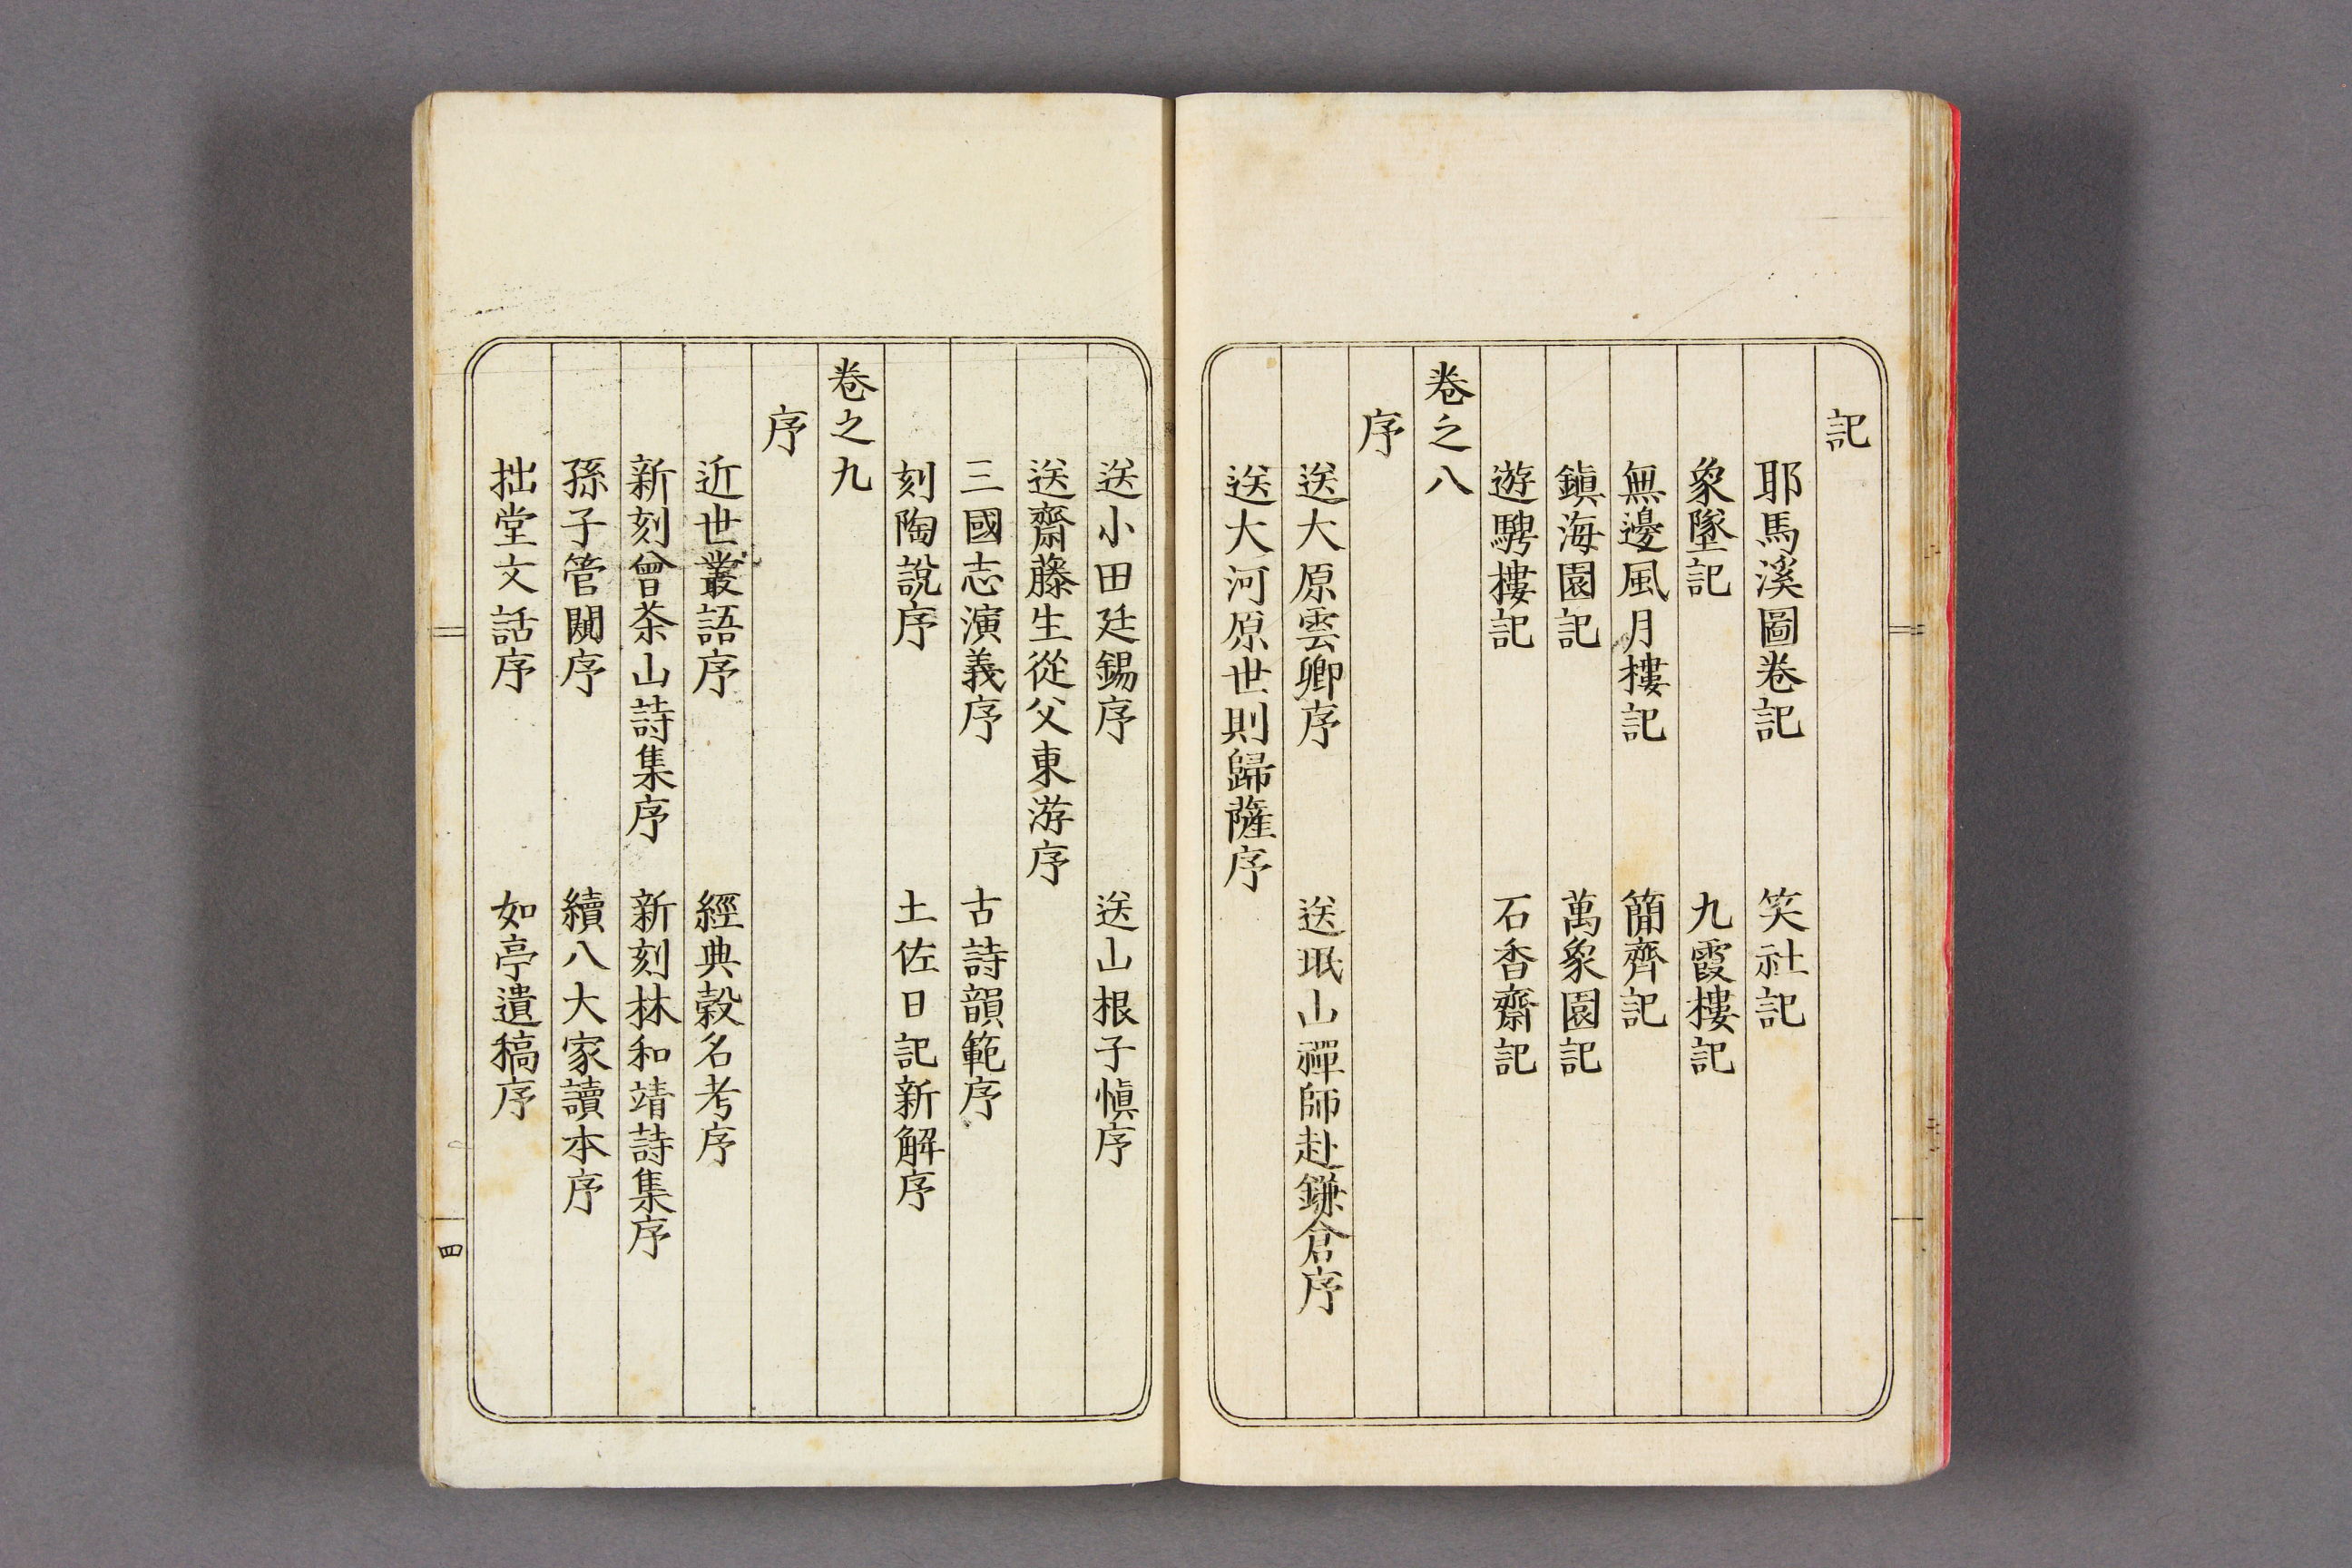 記
耶馬溪圖卷記　笑社記
象墜記　九霞樓記
無邊風月樓記　簡齊記
鎭海園記　萬象園記
遊騁樓記　石香齋記
卷之八
序
送大原雲卿序　送珉山禪師赴鎌倉序
送大河原世則歸薩序
送小田廷錫序　送山根子愼序
送齋藤生從父東游序
三國志演義序　古詩韻範序
刻陶說序　土佐日記新解序
卷之九
序
近世叢語序　經典穀名考序
新刻曾茶山詩集序　新刻林和靖詩集序
孫子管闚序　續八大家讀本序
拙堂文話序　如亭遺稿序
四